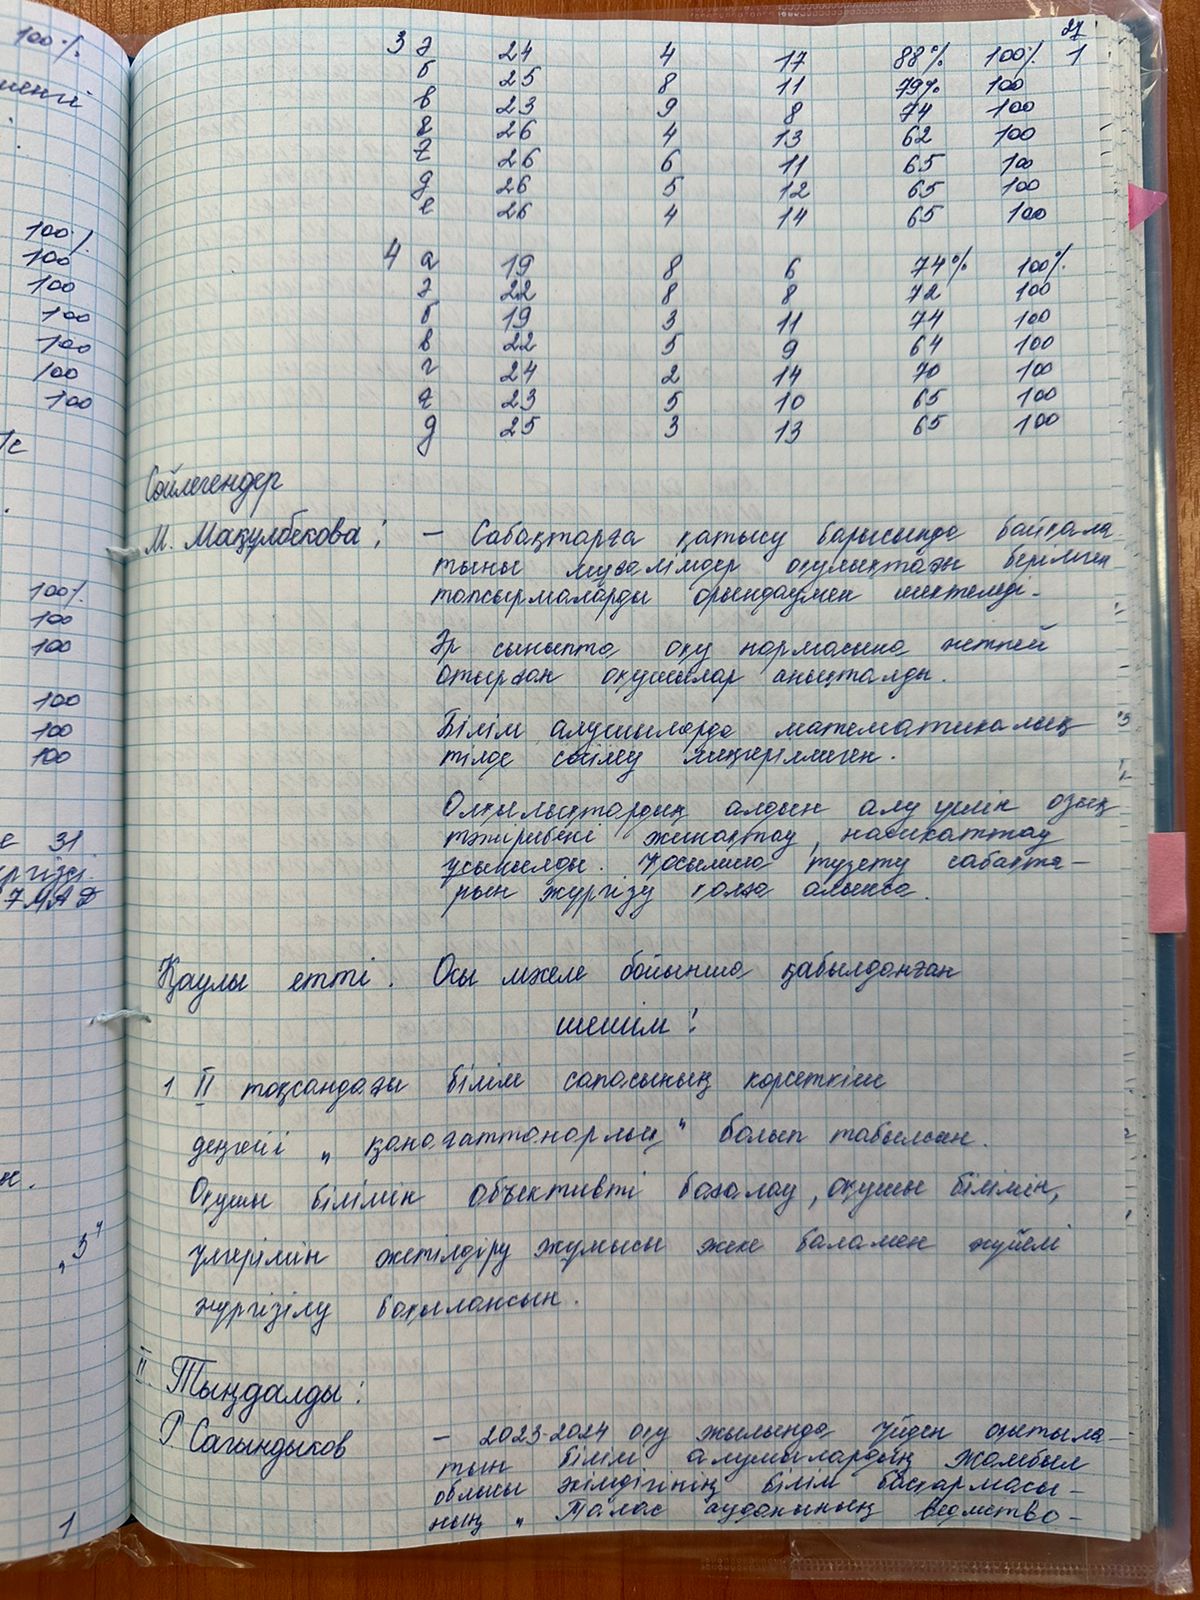 100%
27
3 ә 24 4 17 88% 100% 1
б 25 8 11 79% 100
в 23 9 8 74 100
г 26 4 13 62 100
ғ 26 6 11 65 100
д 26 5 12 65 100
е 26 4 14 65 100
4 а 19 8 6 74% 100%
ә 22 8 8 72 100
б 19 3 11 74 100
в 22 5 9 64 100
г 24 2 14 70 100
ғ 23 5 10 65 100
д 25 3 13 65 100
100%
100
100
100
100
100
100
100%
100
100
100
100
100
31
7 МАД
„5“
1
Сөйлегендер
М. Мақұлбекова: – Сабақтарға қатысу барысында байқала
тыны мұғалімдер оқулықтағы берілген
тапсырмаларды орындаумен шектеледі.
Әр сыныпта оқу нормасына жетпей
отырған оқушылар анықталды.
Білім алушыларда математикалық
тілде сөйлеу меңгерілмеген.
Олқылықтардың алдын алу үшін озық
тәжірибені жинақтау, насихаттау
ұсынылды. Қосымша түзету сабақта-
рын жүргізу қолға алынса.
Қаулы етті. Осы мәселе бойынша қабылданған
шешім:
1 II тоқсандағы білім сапасының көрсеткіш
деңгейі „қанағаттанарлық“ болып табылсын.
Оқушы білімін объективті бағалау, оқушы білімін,
үлгерімін жетілдіру жұмысы жеке баламен жүйелі
жүргізілу бақылансын.
II. Тыңдалды:
Р. Сагындыков – 2023-2024 оқу жылында үйден оқытыла-
тын білім алушылардың Жамбыл
облысы әкімдігінің білім басқармасы-
ның „Талас ауданының ведомство-